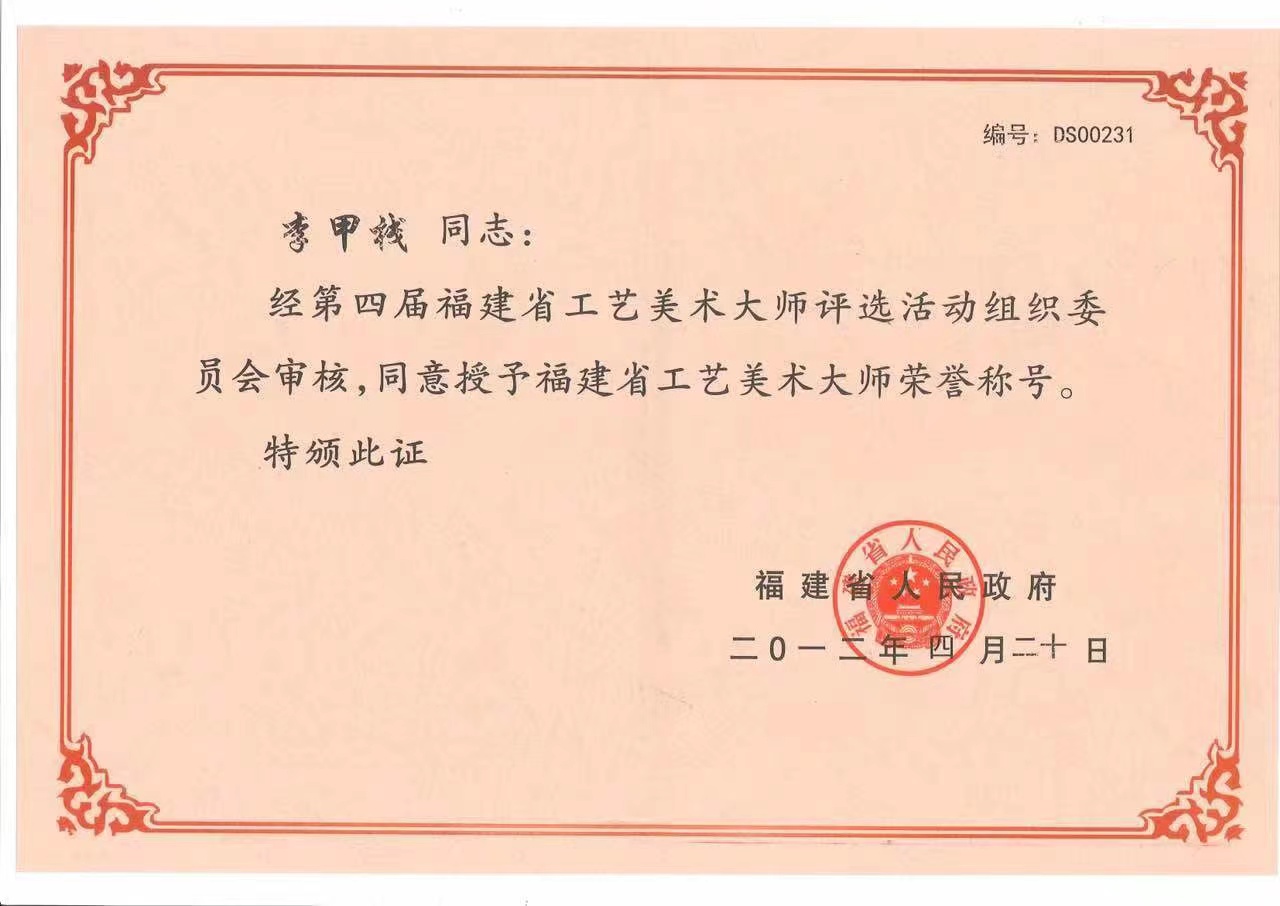 编号：DS00231
李甲栈 同志：
经第四届福建省工艺美术大师评选活动组织委
员会审核，同意授予福建省工艺美术大师荣誉称号。
特颁此证
福建省人民政府
福建省人民政府
二0一二年四月二十日